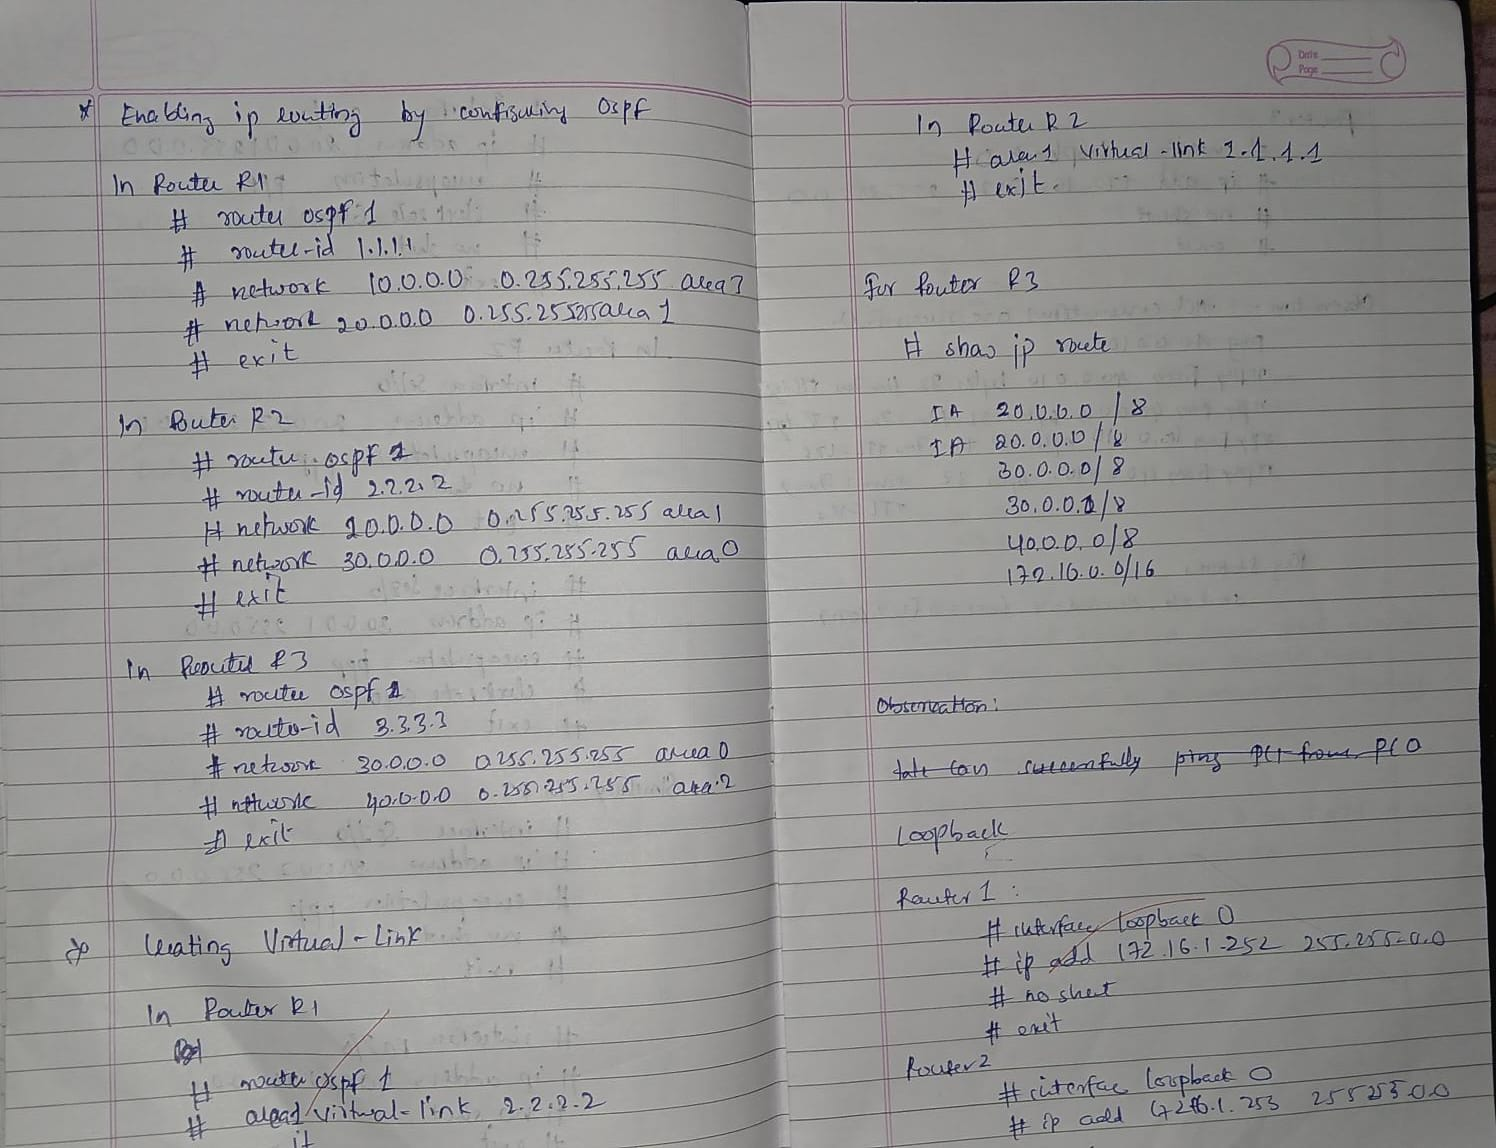 * Enabling ip routing by configuring OSPF
In Router R1
# router ospf 1
# router-id 1.1.1.1
# network 10.0.0.0 0.255.255.255 area 3
# network 20.0.0.0 0.255.255.255 area 1
# exit
In Router R2
# router ospf 1
# router-id 2.2.2.2
# network 20.0.0.0 0.255.255.255 area 1
# network 30.0.0.0 0.255.255.255 area 0
# exit
In Router R3
# router ospf 1
# router-id 3.3.3.3
# network 30.0.0.0 0.255.255.255 area 0
# network 40.0.0.0 0.255.255.255 area 2
# exit
Creating Virtual-Link
In Router R1
# router ospf 1
# area 1 virtual-link 2.2.2.2
Date
Page
In Router R2
# area 1 virtual-link 1.1.1.1
# exit.
For Router R3
# show ip route
IA 20.0.0.0/8
IA 20.0.0.0/8
30.0.0.0/8
30.0.0.1/8
40.0.0.0/8
172.16.0.0/16
Observation:
can successfully ping PC1 from PC0
Loopback
Router 1 :
# interface loopback 0
# ip add 172.16.1.252 255.255.0.0
# no shut
# exit
Router 2
# interface loopback 0
# ip add 172.16.1.253 255.255.0.0